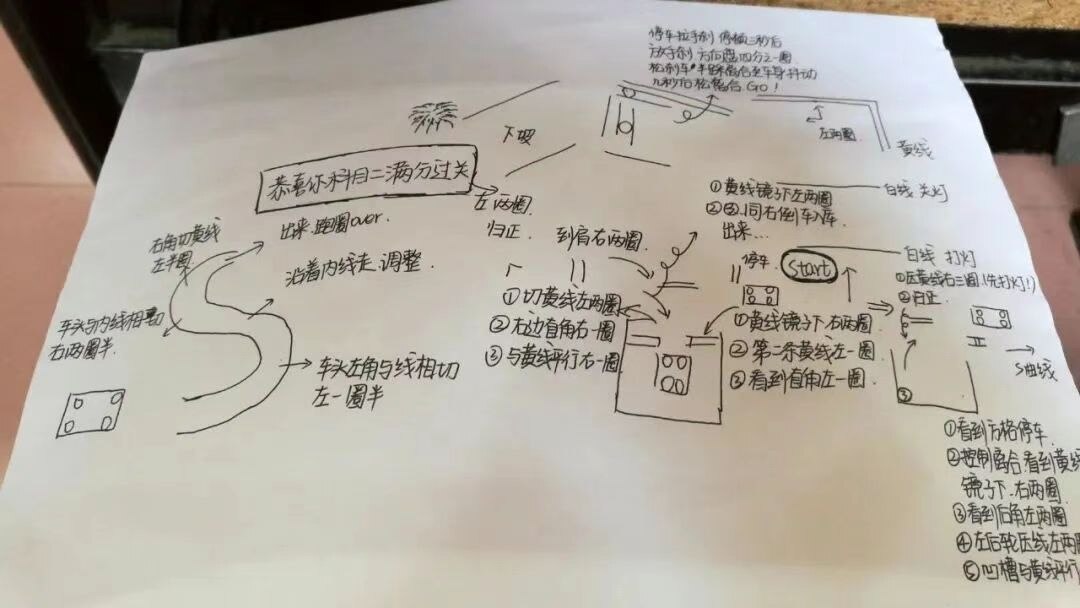 停车拉手刹 停顿三秒后
放手刹 方向盘四分之一圈
松刹车 半踩离合至车身抖动
几秒后松离合.GO!
下坡
左两圈
黄线
恭喜你科目二满分过关
左两圈
归正.
到肩右两圈.
①黄线镜子下左两圈
②③.同右倒车入库
出来...
白线 关灯
右角切黄线
左半圈
出来.跑圈over.
沿着内线走.调整.
停车.
Start
白线 打灯
右三圈(先打灯!)
②归正.
①切黄线左两圈
②右边直角右一圈
③与黄线平行右一圈
①黄线镜子下右两圈.
②第二条黄线左一圈.
③看到直角左一圈.
车头与内线相
右两圈半.
车头左角与线相切
左一圈半
S曲线
③
①看到方格停车.
②控制离合.看到黄线
镜子下.右两圈.
③看到后角左两圈
④左后轮压线左两圈
⑤凹槽与黄线平行